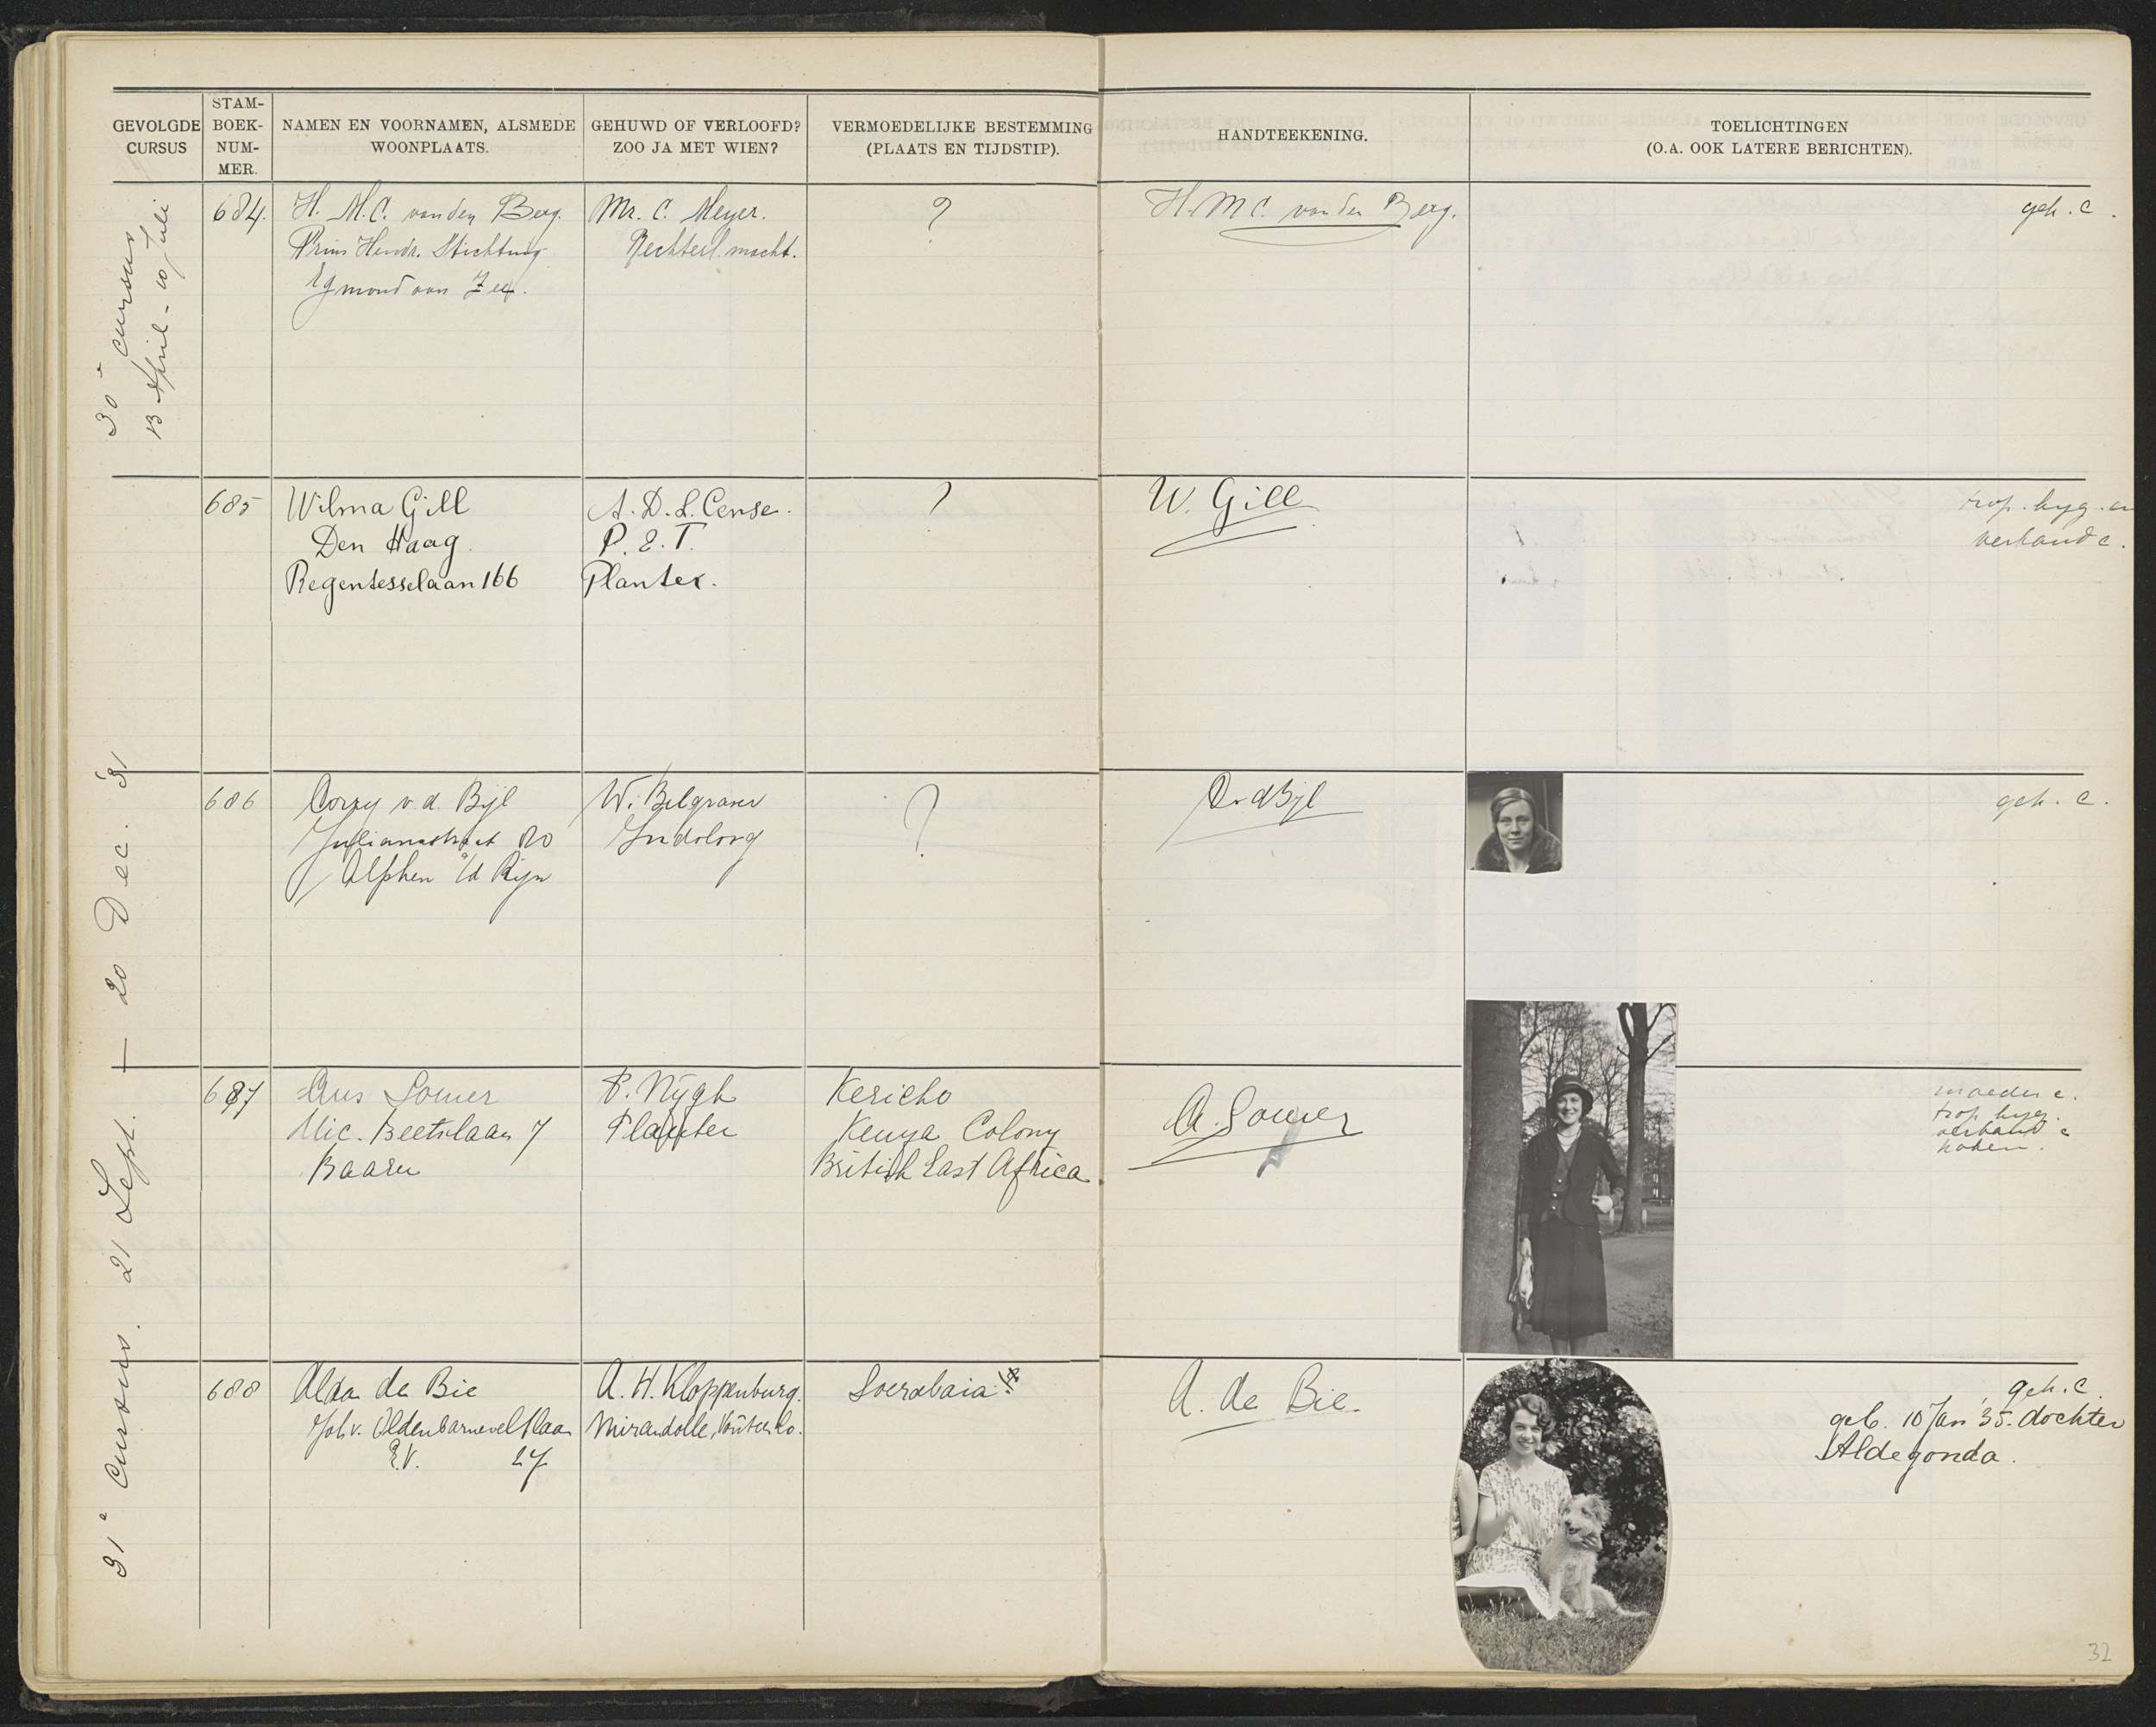 GEVOLGDE
CURSUS
STAM-
BOEK-
NUM-
MER.
NAMEN EN VOORNAMEN, ALSMEDE
WOONPLAATS.
GEHUWD OF VERLOOFD?
ZOO JA MET WIEN?
VERMOEDELIJKE BESTEMMING
(PLAATS EN TIJDSTIP).
HANDTEEKENING.
TOELICHTINGEN
(O.A. OOK LATERE BERICHTEN).
30e cursus
13 April - 10 Juli
684.
H. M.C. van den Berg.
Prins Hendr. Stichting
Egmond aan Zee.
Mr. C. Meyer.
Rechterl. macht.
?
H. M C. van den Berg.
geh. c.
685
Wilma Gill
Den Haag.
Regentesselaan 166
A. D. L. Cense.
P. E. T.
Planter.
?
W. Gill
trop. hyg. en
verband c.
31e Cursus. 21 Sept. — 20 Dec. '31
686
Corry v. d. Bijl
Julianastraat
Alphen a/d Rijn
W. Belgraver
Indoloog
?
C v d Bijl
geh. c.
687
Aus Somer
Nic. Beetslaan 7
Baarn
P. Nÿgh
Planter
Kericho
Kenya Colony
British East Africa
A. Somer
moeder c.
trop. hyg.
verband c
koken.
688
Alda de Bie
Joh v. Oldenbarneveltlaan
27
A. H. Kloppenburg.
Mirandolle, Voûte & Co.
Soerabaia
A. de Bie.
geh. c.
geb. 10 Jan '35. dochter
Aldegonda.
32